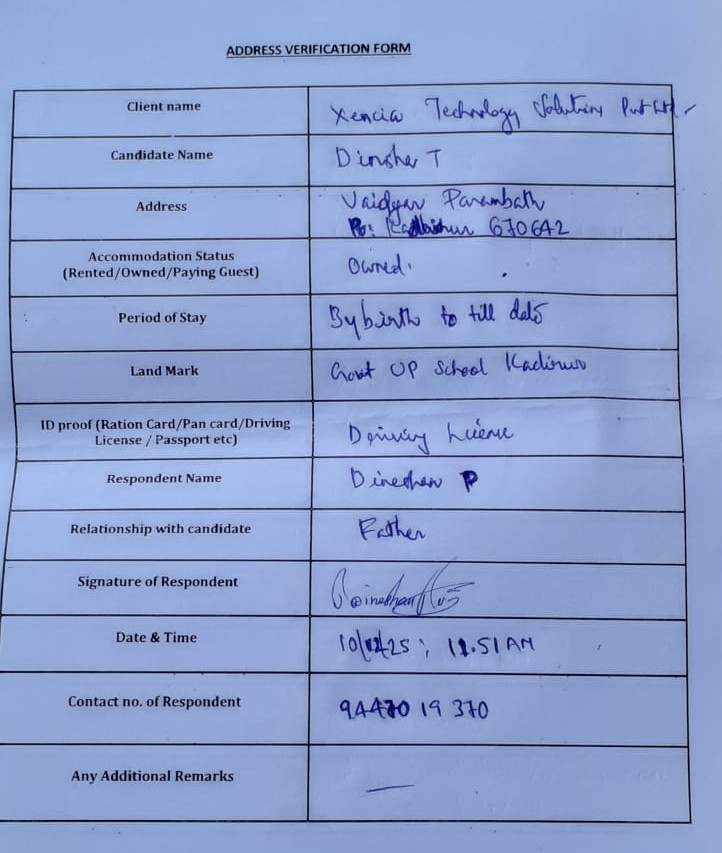 ADDRESS VERIFICATION FORM
Client name
Xencia Technology Solutions Pvt Ltd
Candidate Name
T
Address
Vaidyar Parambath
Po: 670642
Accommodation Status
(Rented/Owned/Paying Guest)
Owned.
Period of Stay
By birth to till date
Land Mark
Govt UP School
ID proof (Ration Card/Pan card/Driving
License / Passport etc)
Driving License
Respondent Name
Dineshan P
Relationship with candidate
Father
Signature of Respondent
Date & Time
11.51 AM
Contact no. of Respondent
94470 19 370
Any Additional Remarks
—